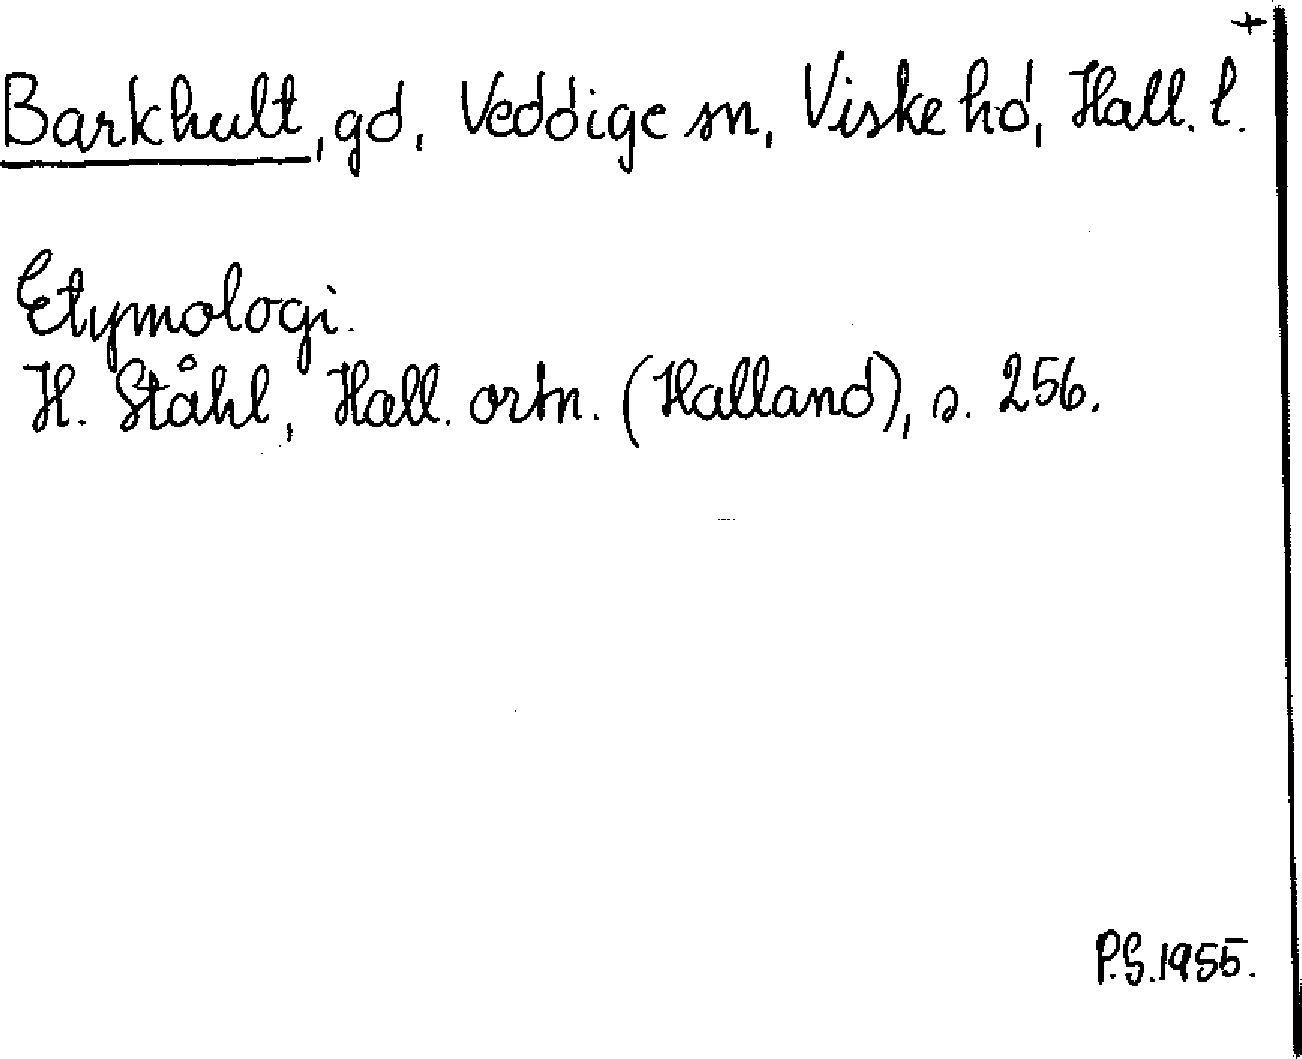 +
Barkhult, gd, Veddige sn, Viske hd, Hall. l.
Etymologi.
H. Ståhl, Hall. ortn. (Halland), s. 256.
P.S. 1955.